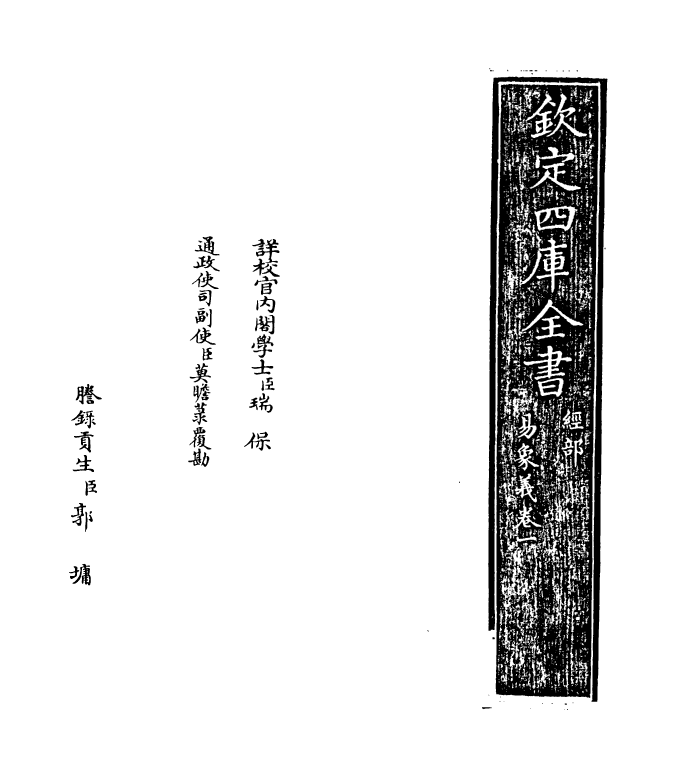 欽定四庫全書
經部
易象義卷一
詳校官内閣學士臣瑞保
通政使司副使臣莫瞻菉覆勘
謄錄貢生臣郭墉